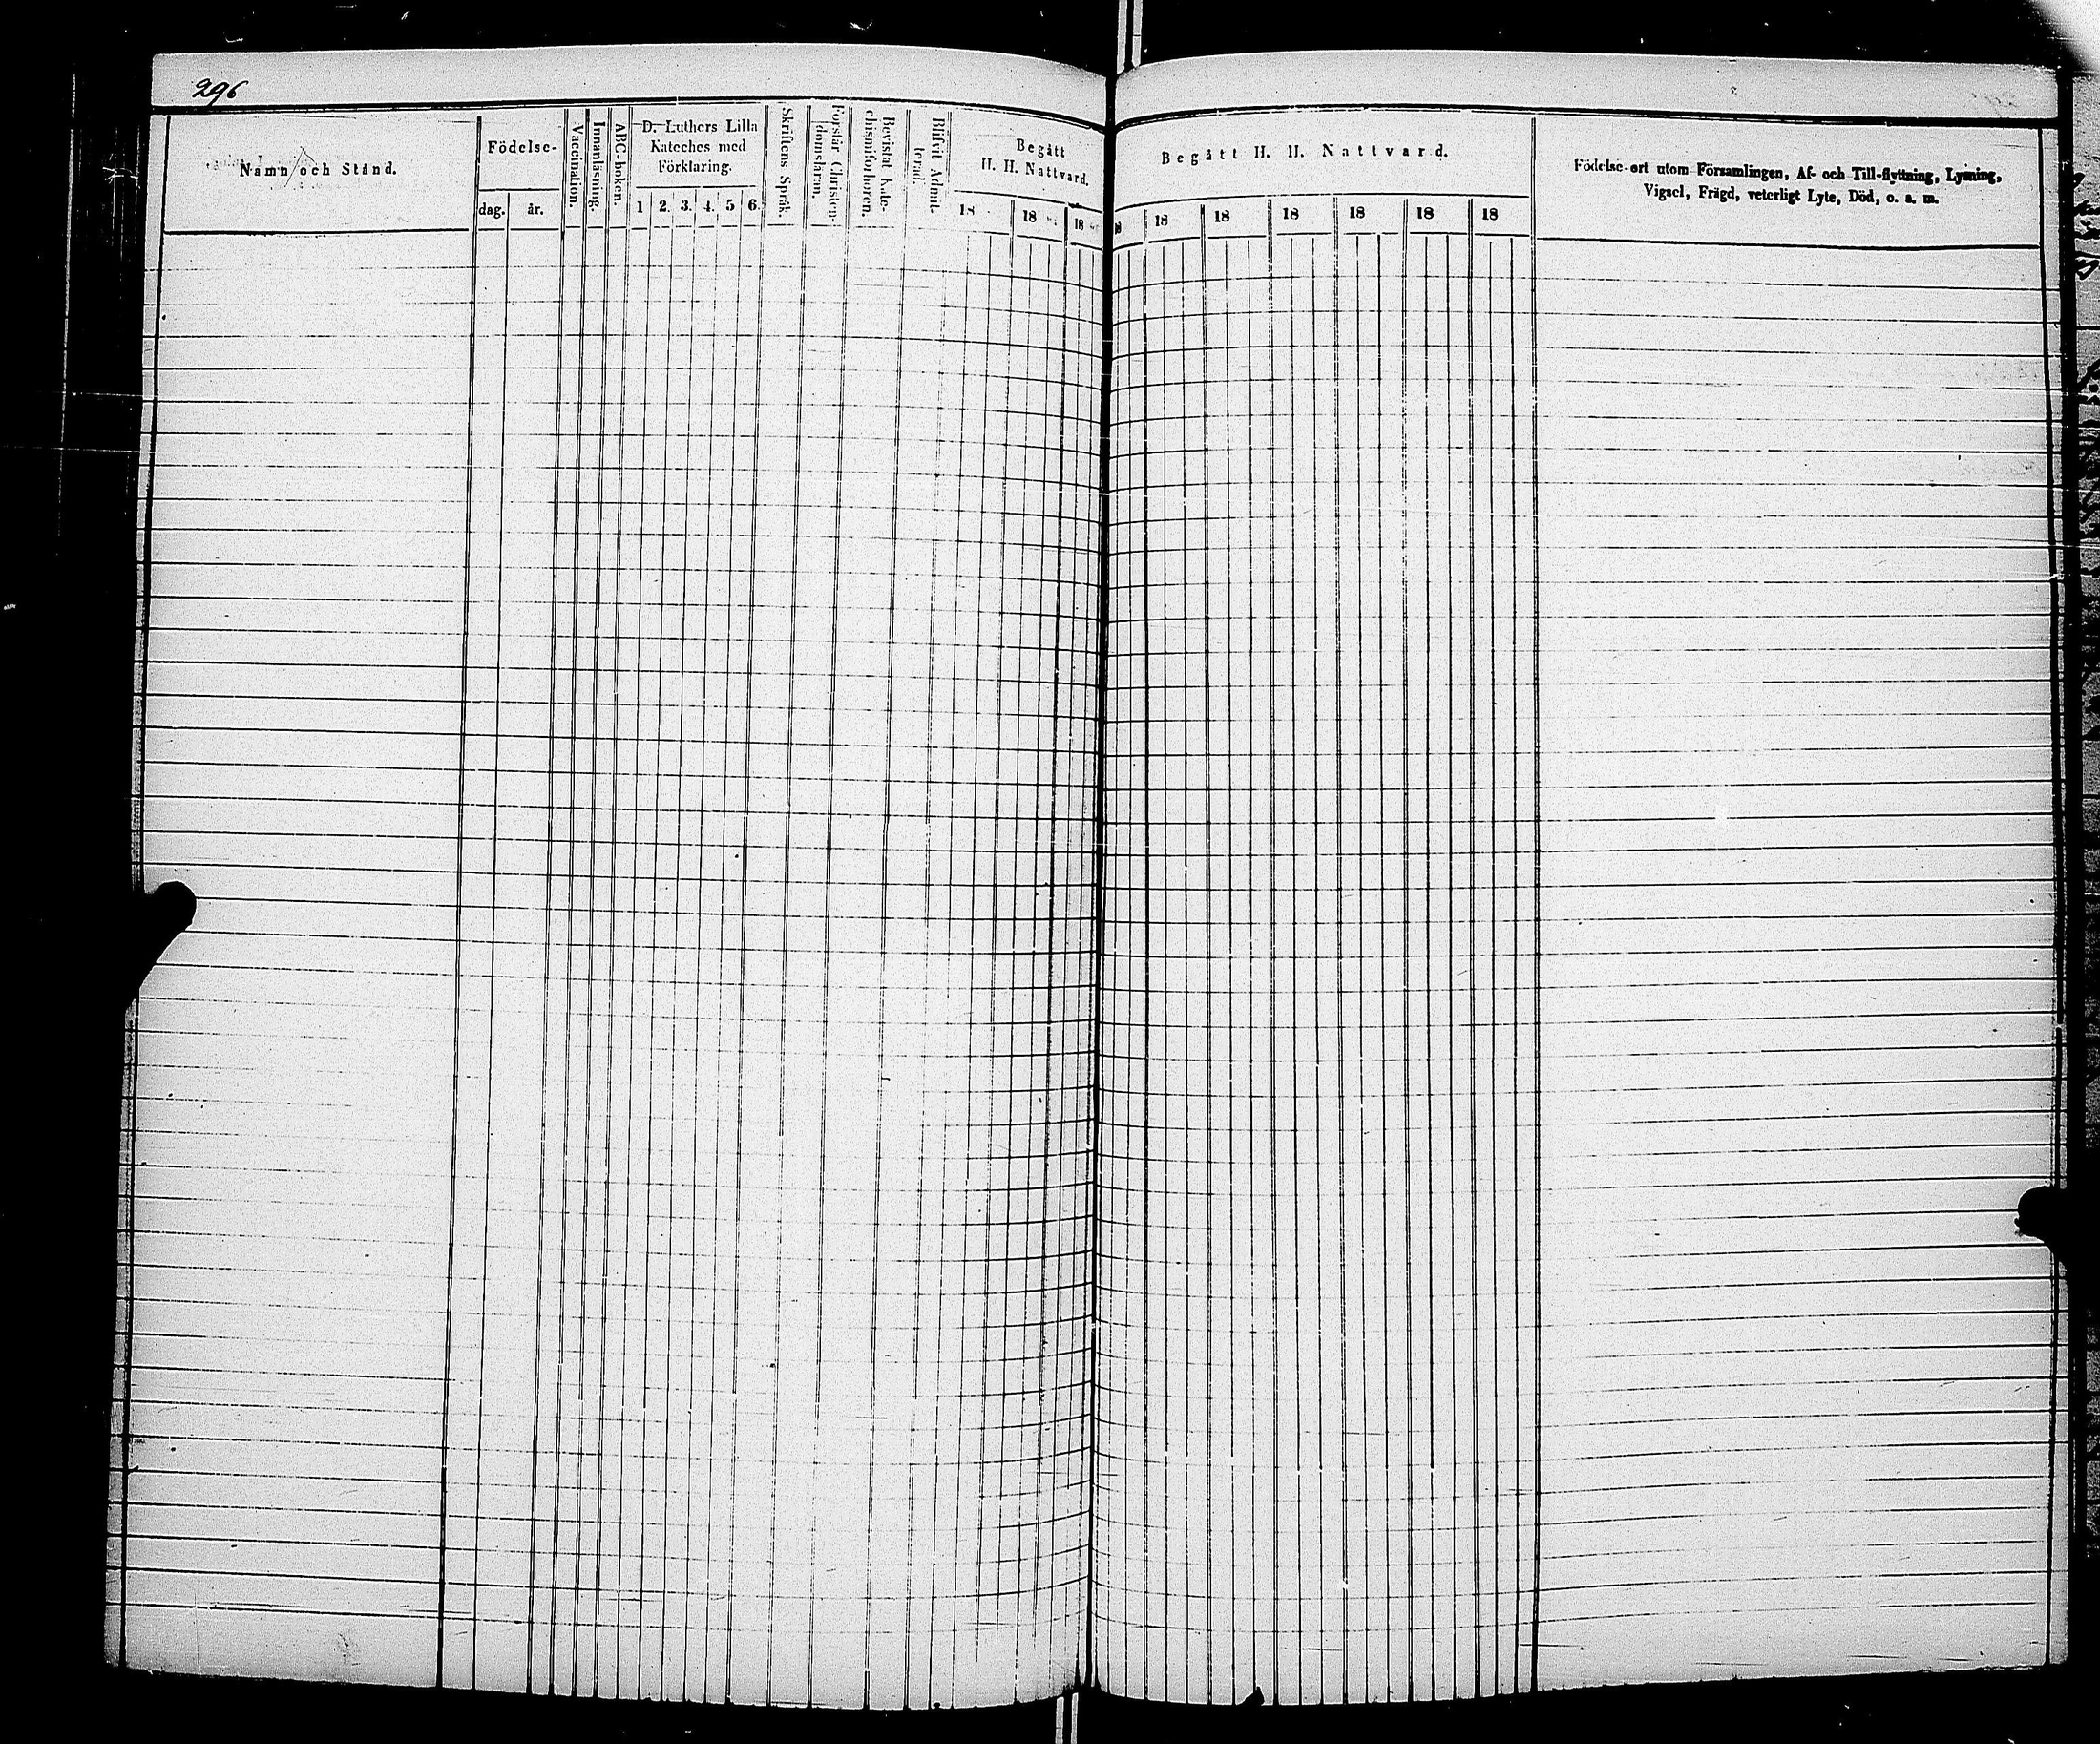 296
Namn och Stånd.
Födelse-
dag.
år.
Vaccination.
Innanläsning.
ABC-boken.
D. Luthers Lilla
Kateches med
Förklaring.
1 2. 3. 4. 5 6.
Skriftens Språk.
Förstår Christen-
domsläran.
Bevistat Kate-
chismiförhören.
Blifvit Admit-
terad.
Begått
H. H. Nattvard.
18 18 18
Begått H. H. Nattvard.
18 18 18 18 18 18
Födelse-ort utom Församlingen, Af- och Till-flyttning, Lysning,
Vigsel, Frägd, veterligt Lyte, Död, o. s. m.